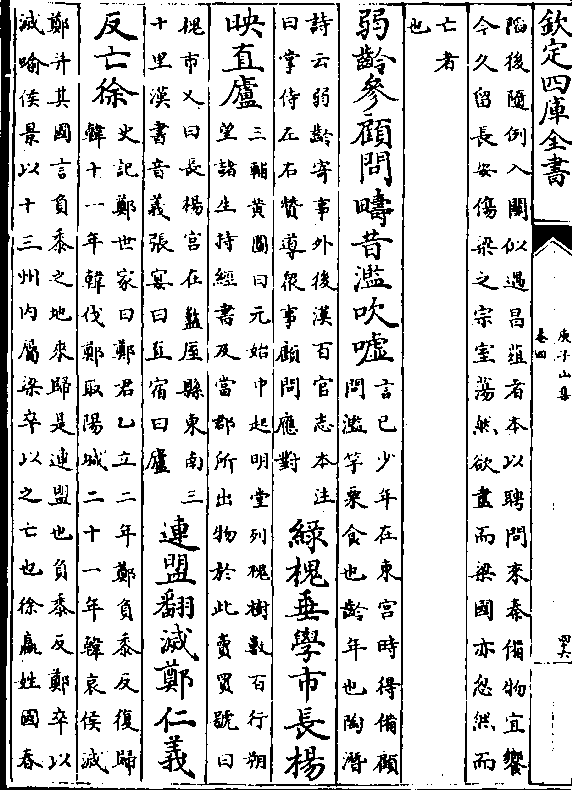 欽定四庫全書
庾子山集
卷四
陷後隨例入關似遇昌蒩者本以聘問來秦備物宜饗
今久留長安傷梁之宗室蕩然欲盡而梁國亦忽然而
亡者
也
弱齡參顧問疇昔濫吹噓
言已少年在東宮時得備顧
問濫竽粟食也齡年也陶潛
詩云弱齡寄事外後漢百官志本注
曰掌侍左右贊導衆事顧問應對
綠槐垂學市長楊
映直廬
三輔黄圖曰元始中起明堂列槐樹數百行朔
望諸生持經書及當郡所出物於此賣買號曰
槐市又曰長楊宮在盩厔縣東南三
十里漢書音義張宴曰直宿曰廬
連盟翻滅鄭仁義
反亡徐
史記鄭世家曰鄭君乙立二年鄭負黍反復歸
韓十一年韓伐鄭取陽城二十一年韓哀侯滅
鄭并其國言負黍之地來歸是連盟也負黍反鄭卒以
滅喻侯景以十三州内屬梁卒以之亡也徐嬴姓國春